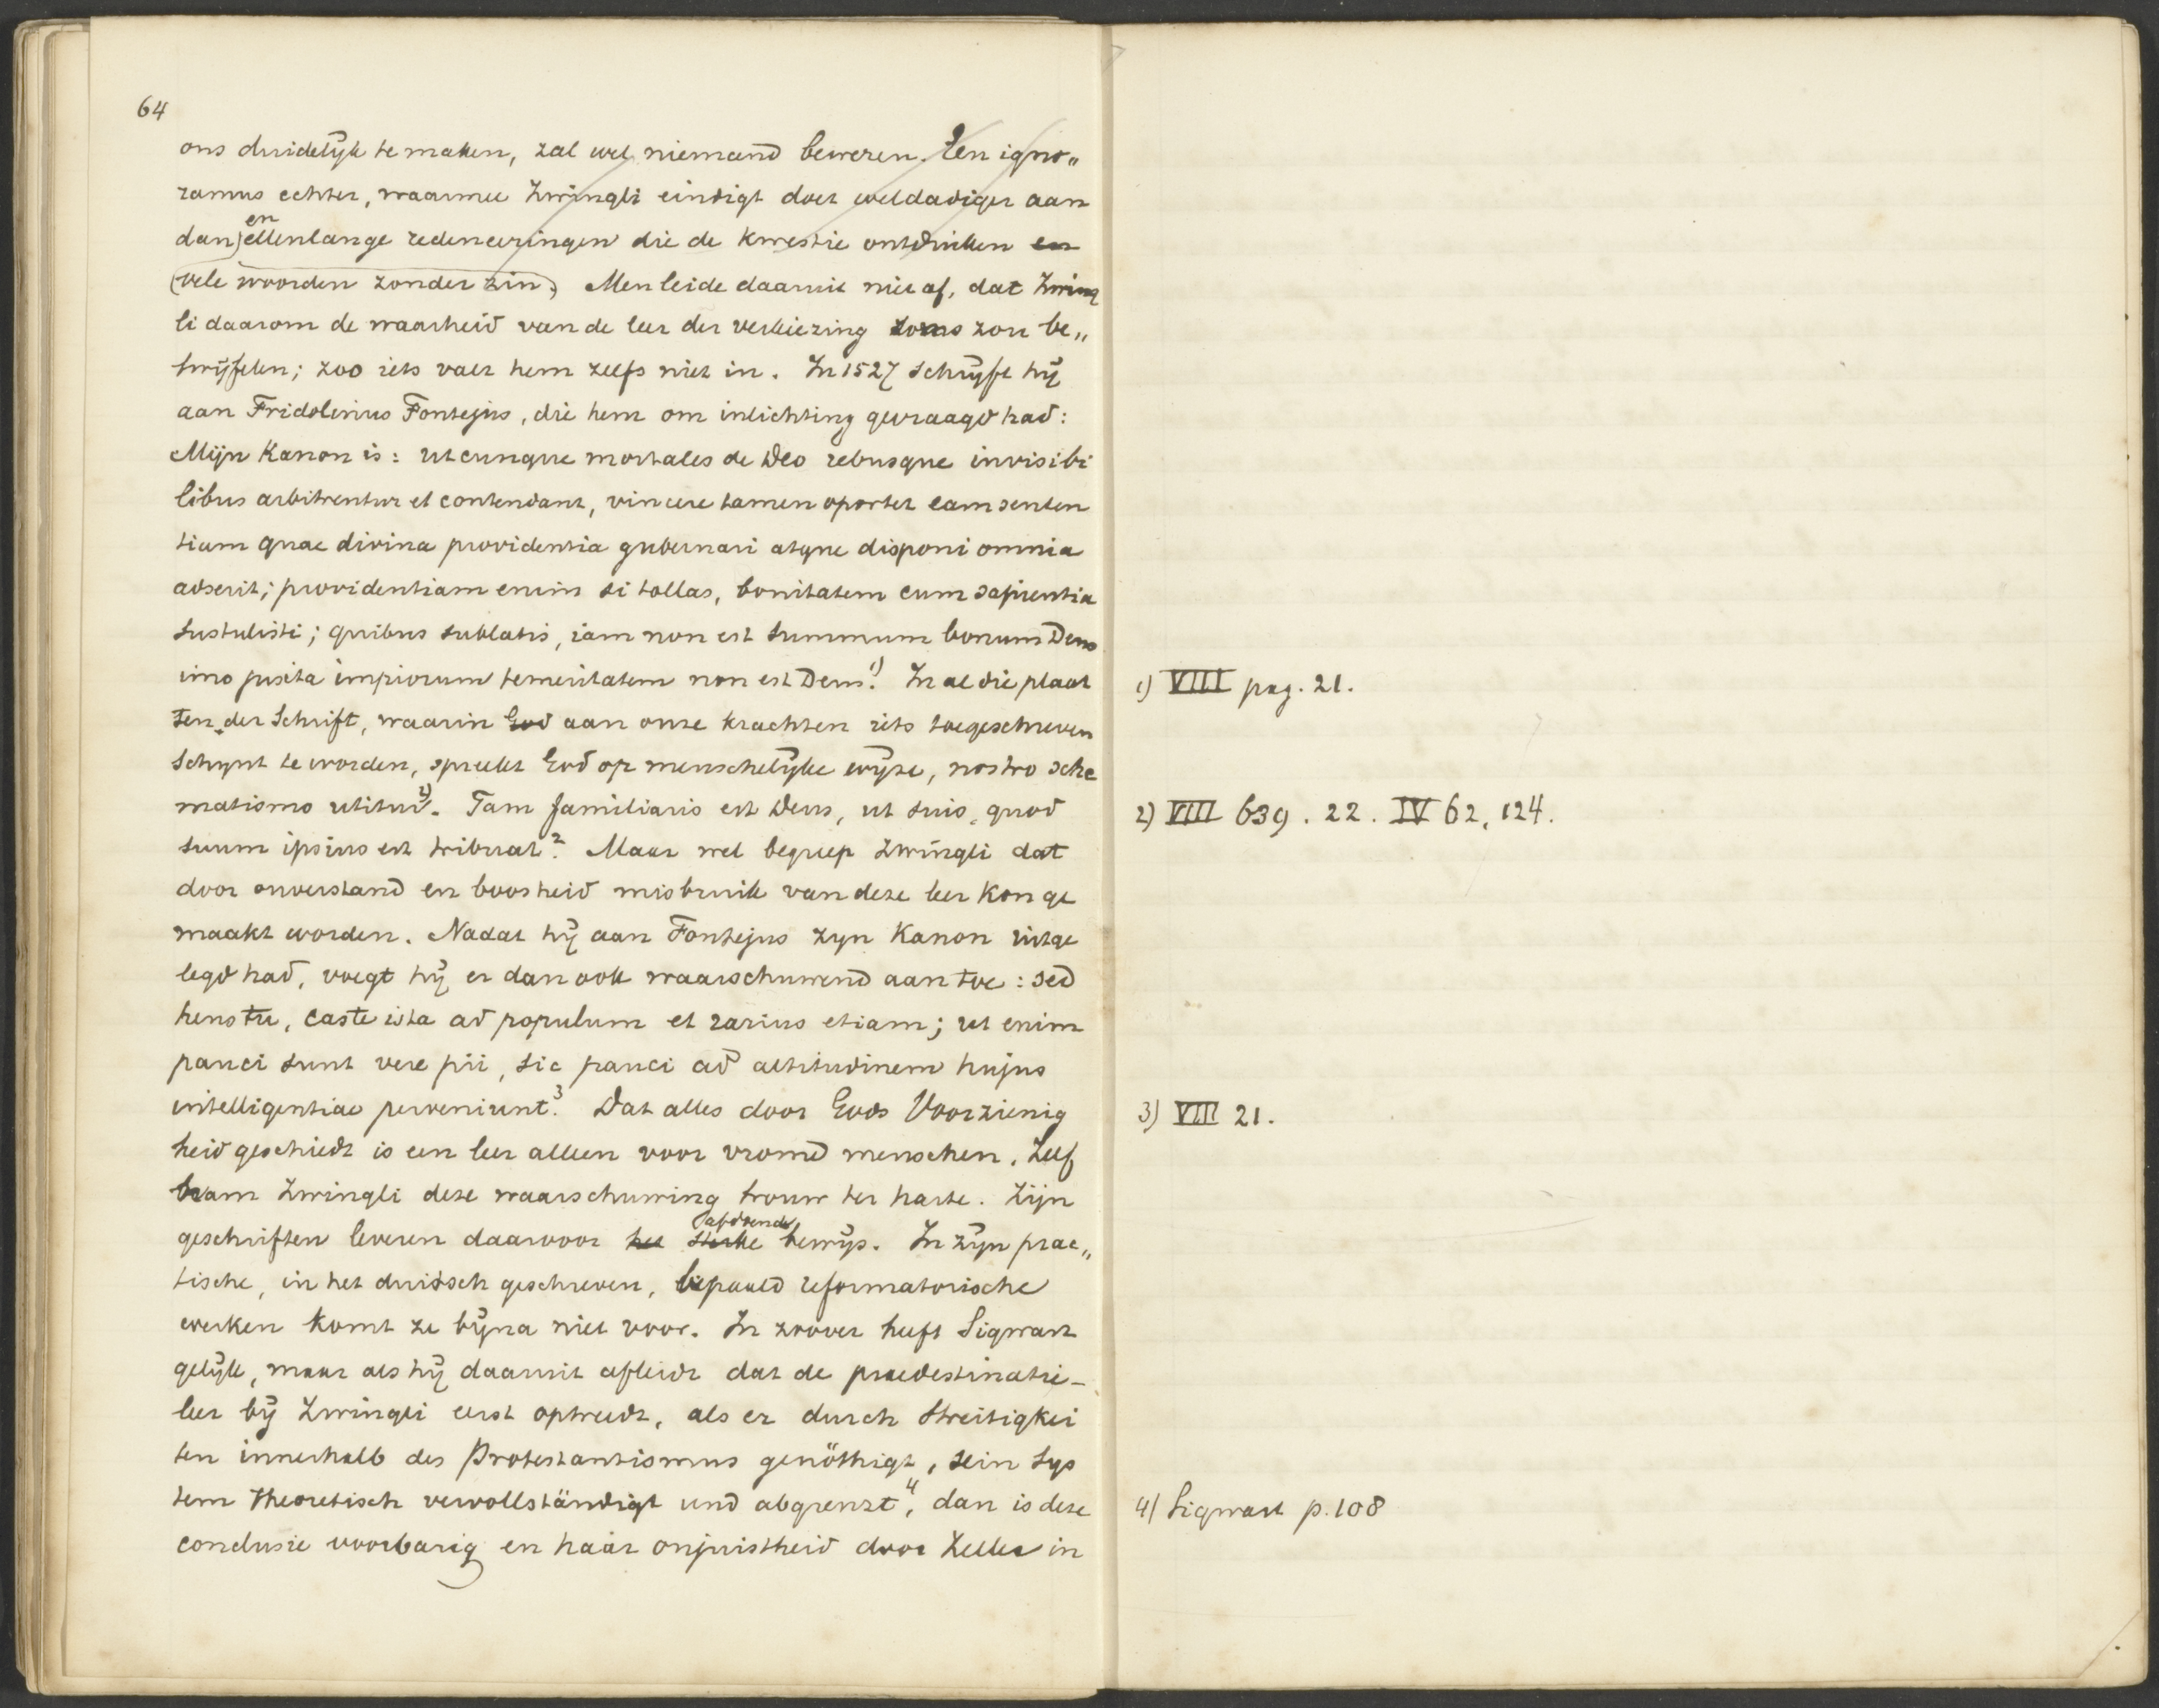 64
ons duidelijk te maken, zal wel niemand beweren. Een igno„
ramus echter, waarmee Zwingli eindigt doet weldadiger aan
dan en ellenlange redeneeringen die de kwestie ontduiken en
(vele woorden zonder zin). Men leide daaruit niet af, dat Zwing
li daarom de waarheid van de leer der verkiezing soms zou be„
twijfelen; zoo iets valt hem zelfs niet in. In 1527 schrijft hij
aan Fridolinus Fontejus, die hem om inlichting gevraagd had:
Mijn Kanon is: utcunque mortales de Deo rebusque invisibi
libus arbitrentur et contendant, vincere tamen oportet eam senten
tiam quae divina providentia gubernari atque disponi omnia
adserit; providentiam enim si tollas, bonitatem cum sapientia
sustulisti; quibus sublatis, iam non est summum bonum Deus
imo juxta impiorum temeritatem non est Deus.1) In al die plaat
sen der Schrift, waarin God aan onze krachten iets toegeschreven
schynt te worden, spreekt God op menschelijke wijze, nostro sche
matismo utitur2). Tam familiaris est Deus, ut suis, quod
suum ipsius est tribuat.2 Maar wel begreep Zwingli dat
door onverstand en boosheid misbruik van deze leer kon ge
maakt worden. Nadat hij aan Fontejus zyn Kanon uitge
legd had, voegt hij er dan ook waarschuwend aan toe: sed
heus tu, caste ista ad populum et rarius etiam; ut enim
pauci sunt vere pii, sic pauci ad altitudinem hujus
intelligentiae perveniunt.3 Dat alles door Gods Voorzienig
heid geschiedt is een leer alleen voor vrome menschen. Zelf
nam Zwingli deze waarschuwing trouw ter harte. Zijn
geschriften leveren daarvoor het sterke afdoende bewijs. In zijn prac„
tische, in het duitsch geschreven, bepaald reformatorische
werken komt ze bijna niet voor. In zoover heeft Sigwart
gelijk, maar als hij daaruit afleidt dat de praedestinatie-
leer bij Zwingli eerst optreedt, als er durch Streitigkei
ten innerhalb des Protestantismus genöthigt, sein Sys
tem theoretisch vervollständigt und abgrenzt4, dan is deze
conclusie voorbarig en haar onjuistheid door Zeller in
1) VIII pag. 21.
2) VIII 639. 22. IV 62, 124.
3) VIII 21.
4) Sigwart p. 108